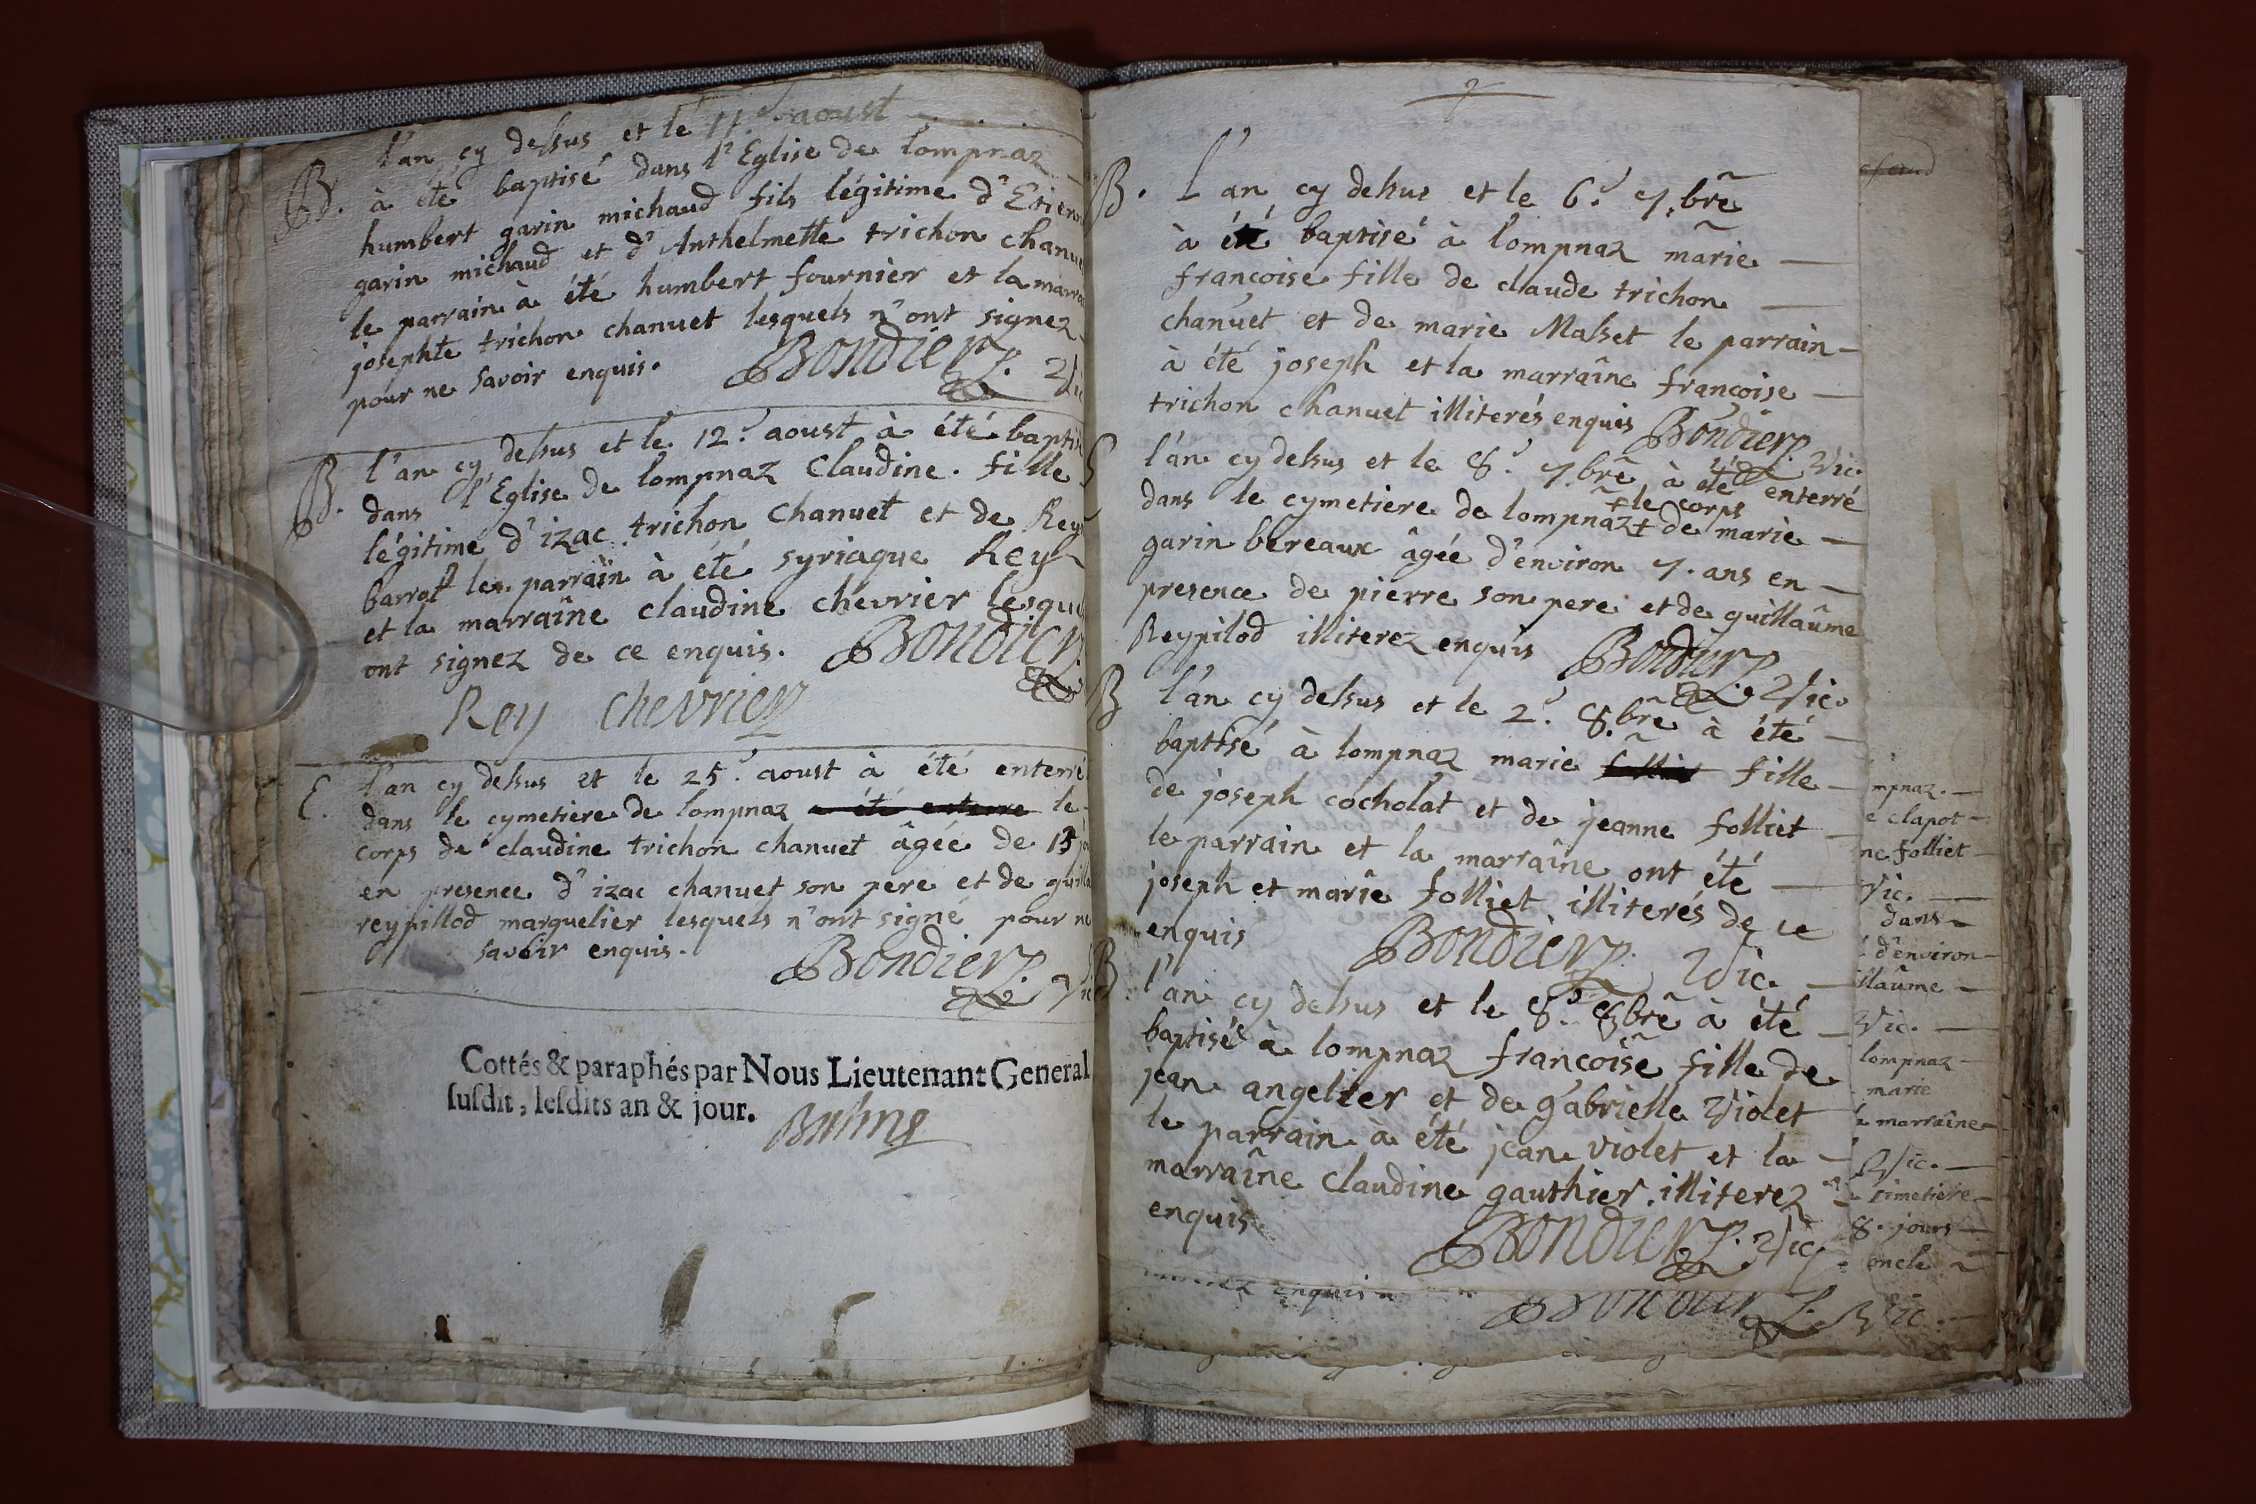 B. l'an cy dessus et le 11.e aoust
à été baptisé dans l'Eglise de lompnaz
humbert garin michaud fils légitime d'Etien
garin michaud et d'Anthelmette trichon chanu
le parrain à été humbert fournier et la marra
josephte trichon chanuet lesquels n'ont signez
pour ne savoir enquis. Bondier p. Vic
B. l'an cy dessus et le 12.e aoust à été bapti
dans l'Eglise de lompnaz Claudine fille
légitime d'izac trichon chanuet et de Rey
barrot le parrain à été syriaque Rey
et la marraîne claudine chevrier lesque
ont signez de ce enquis. Bondier
Rey chevrier
E. l'an cy dessus et le 25.e aoust à été enterré
dans le cymetiere de lompnaz a été enterre le
corps de claudine trichon chanuet âgée de 15 jo
en presence d'izac chanuet son pere et de guilla
reypillod marguelier lesquels n'ont signé pour ne
savoir enquis. Bondier p. Vic
Cottés & paraphés par Nous Lieutenant General
susdit, lesdits an & jour.
2
B. L'an cy dessus et le 6.e 7.brê
à été baptisé à lompnaz marie
françoise fille de claude trichon
chanuet et de marie Masset le parrain
à été joseph et la marraîne françoise
trichon chanuet illiterés enquis Bondier p. Vic.
E l'an cy dessus et le 8.e 7.brê à été enterré
dans le cymetiere de lompnaz + + le corps de marie
garin bereaux âgée d'environ 7. ans en
presence de pierre son pere et de guillaûme
Reypilod illiterez enquis Bondier p. Vic.
B l'an cy dessus et le 2.e 8.brê à été
baptisé à lompnaz marie fille
de joseph cocholat et de jeanne folliet
le parrain et la marraîne ont été
joseph et marie folliet illiterés de ce
enquis Bondier p. Vic.
B. l'an cy dessus et le 8.e 8brê à été
baptisé à lompnaz françoise fille de
jean angelier et de gabrielle Violet
le parrain à été jean violet et la
marraîne claudine gauthier illiterez
enquis. Bondier p. Vic
enquis Bondier p. Vic.
mpnaz.
e clapot
ne folliet
Vic.
dans
d'environ
llaûme
Vic.
lompnaz
marie
a marraîne
Vic.
cimetiere
8. jours
oncle